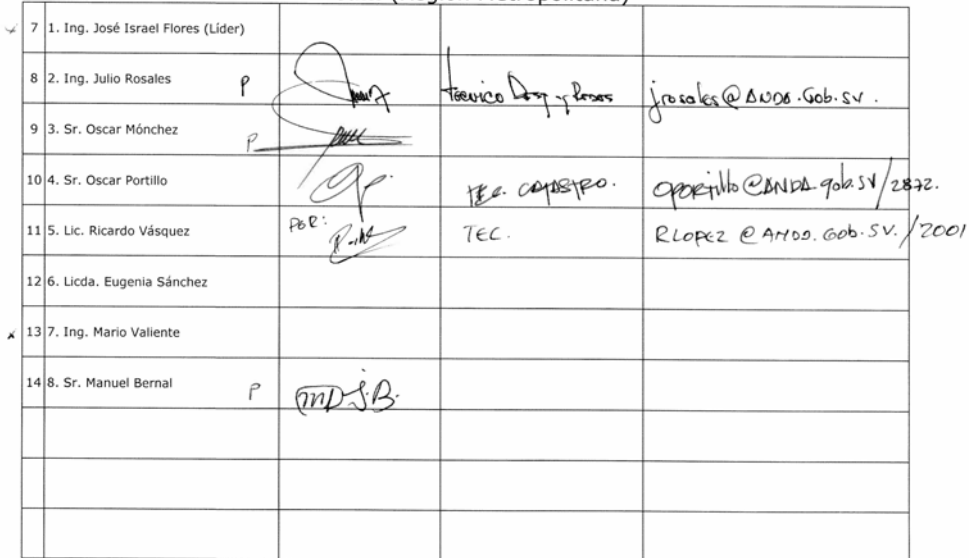 (Región Metropolitana)
7 1. Ing. José Israel Flores (Líder)
8 2. Ing. Julio Rosales P Técnico y Redes jrosales@ANDA.Gob.SV.
9 3. Sr. Oscar Mónchez P
10 4. Sr. Oscar Portillo TEC. CATASTRO. oportillo@ANDA.gob.SV/2872.
11 5. Lic. Ricardo Vásquez POR: TEC. RLOPEZ@ANDA.Gob.SV./2001
12 6. Licda. Eugenia Sánchez
13 7. Ing. Mario Valiente
14 8. Sr. Manuel Bernal P